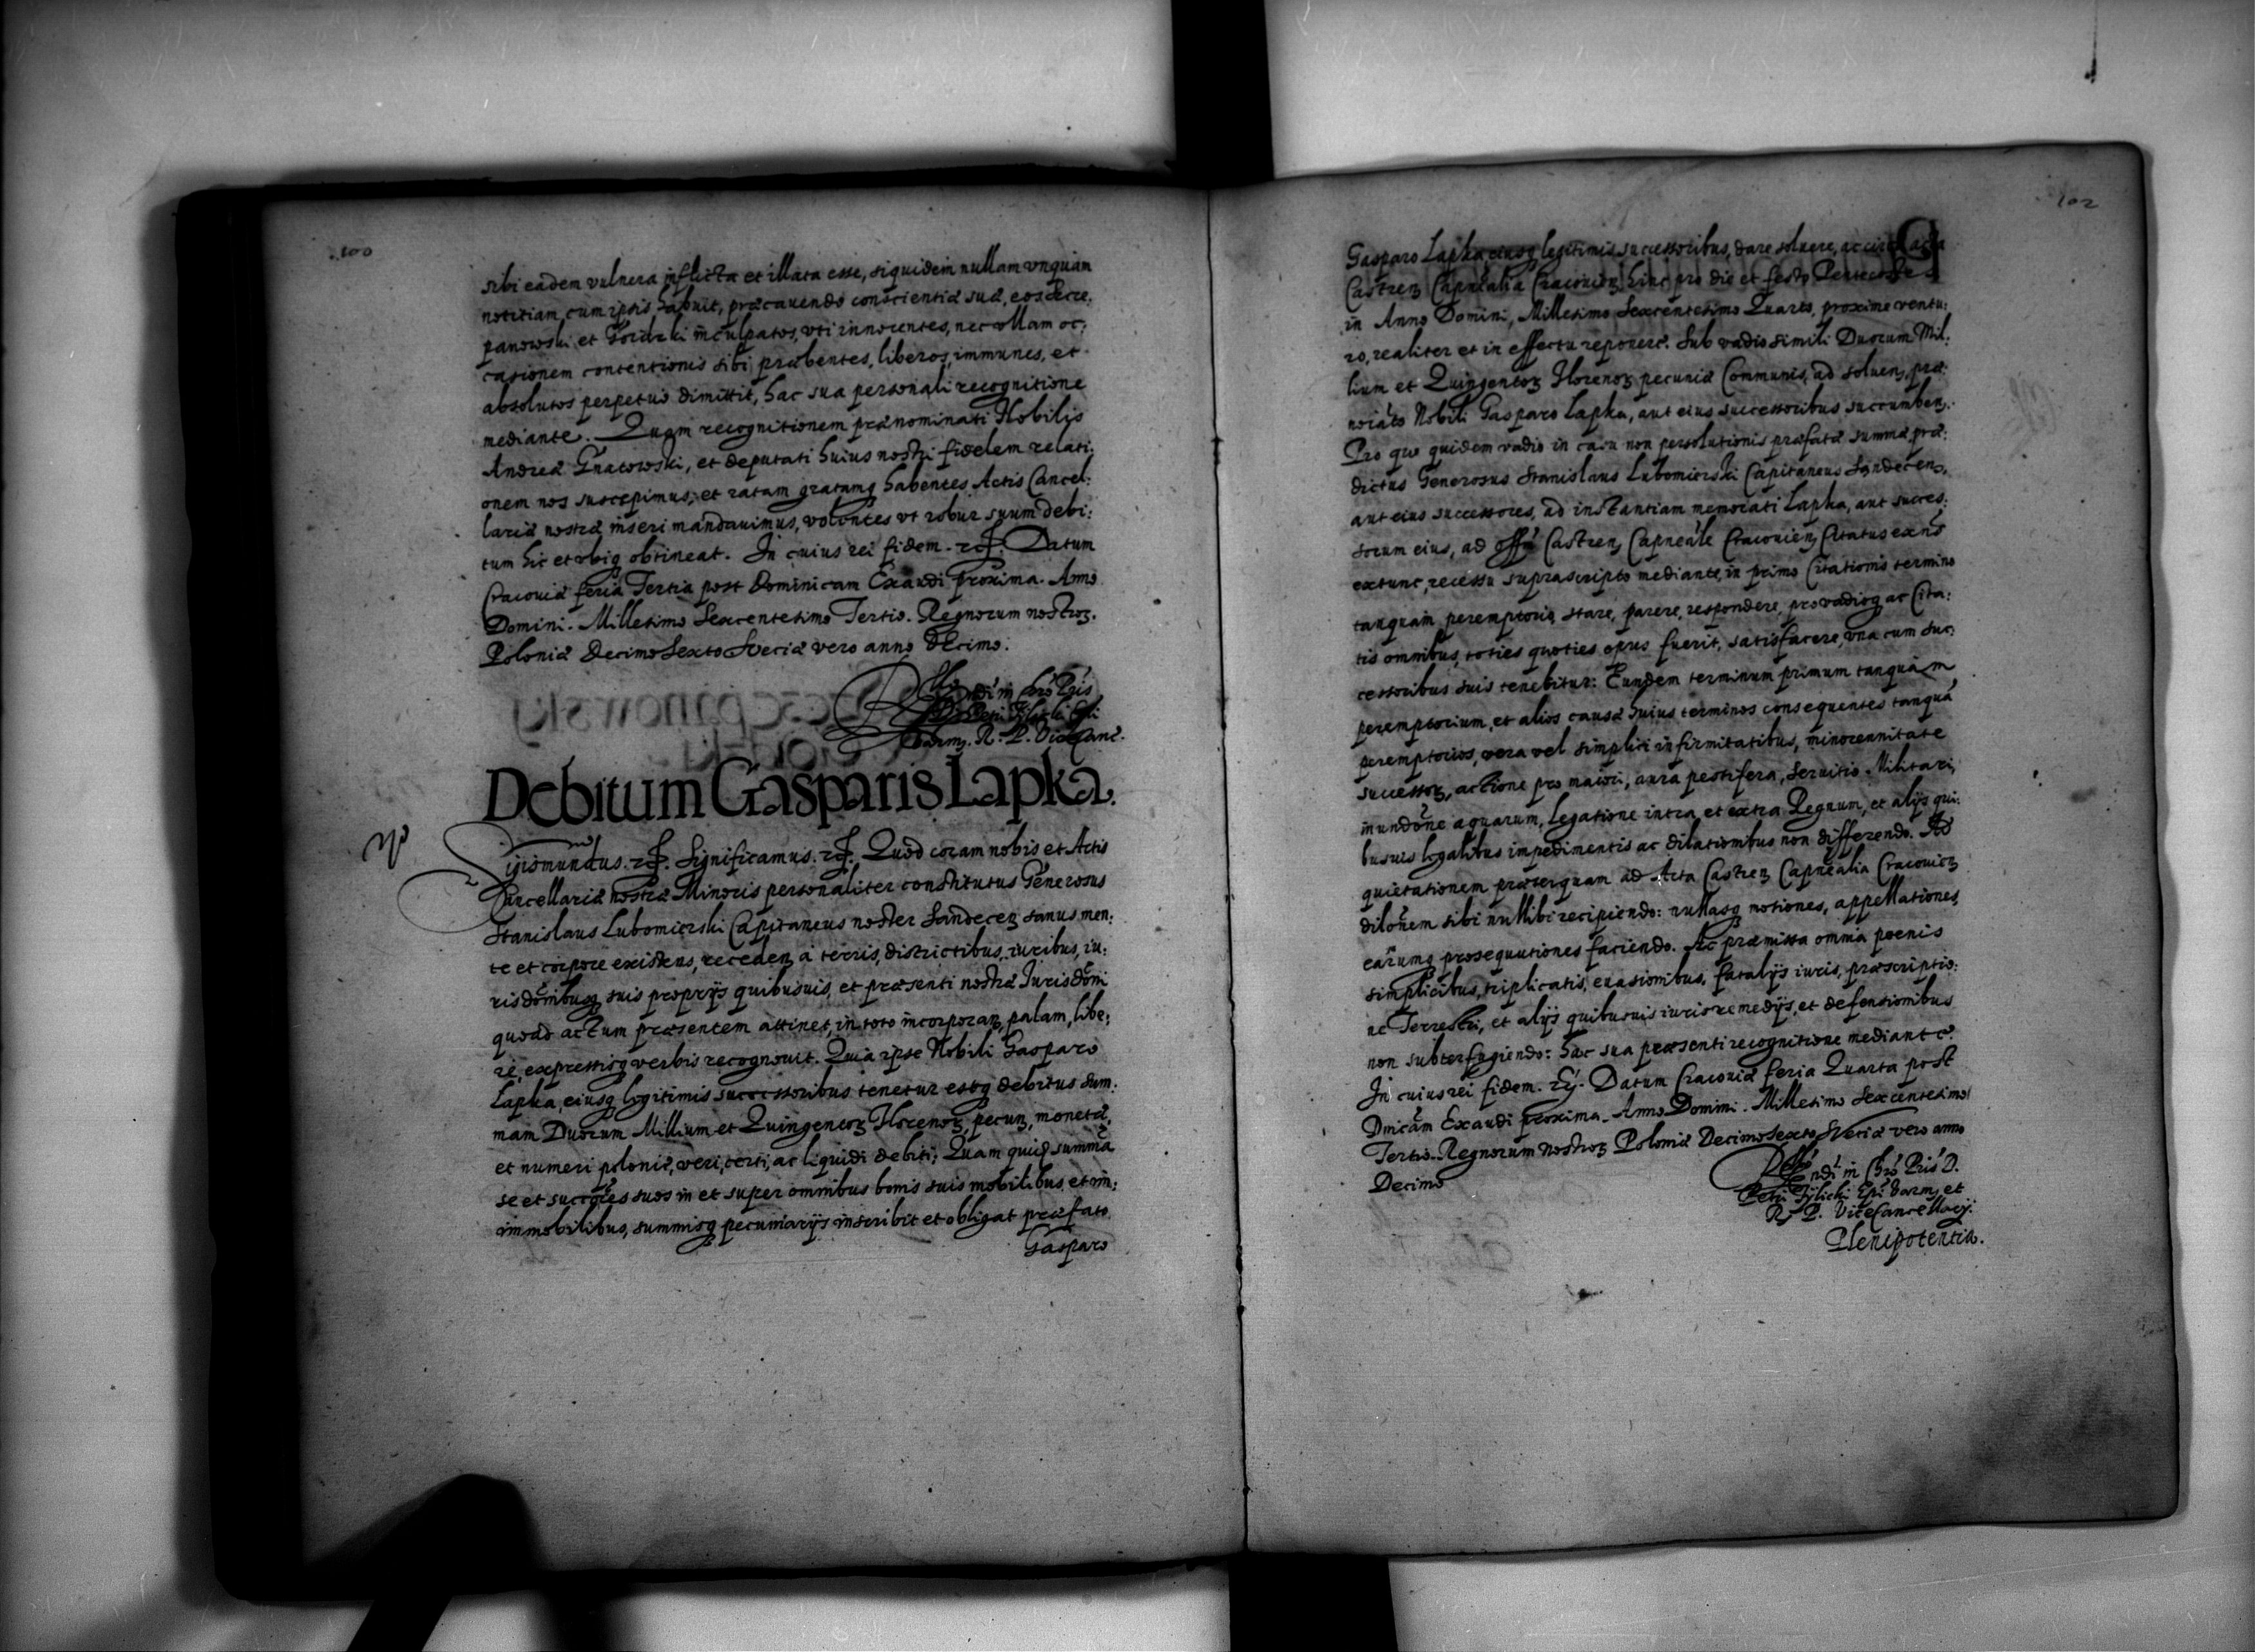 100
sibi eadem vulnera inflicta et illata esse, siquidem nullam vnquam
notitiam cum ipsis habuit, præcauendo conscientiæ suæ, eosdem
panowski et Gordzki inculpatos, vti innocentes, nec vllam oc:
casionem contentionis sibi præbentes, liberos, immunes, et
absolutos perpetuo dimittit, hac sua personali recognitione
mediante. Quam recognitionem prænominati Nobilis
Andreæ Gnatowski, et deputati huius nostri fidelem relati:
onem nos suscepimus, et ratam gratamq habentes Actis Cancel:
lariæ nostræ inseri mandauimus, volentes vt robur suum debi:
tum hic et vbiq obtineat. In cuius rei fidem. Datum
Cracouiæ feria Tertia post Dominicam Exaudi proxima. Anno
Domini. Millesimo Sexcentesimo Tertio. Regnorum nostroꝝ.
Poloniæ Decimo Sexto Sveciæ vero anno Decimo.
ndi in Chro Pris
R. P. Vicecanc.
Debitum Gasparis Lapka.
Sigismundus. Significamus. Quod coram nobis et Actis
Cancellariæ nostræ Minoris personaliter constitutus Generosus
Stanislaus Lubomierski Capitaneus noster Sandecen sanus men:
te et corpore existens, receden a terris, districtibus, iuribus, iu:
risdōnibusq suis proprijs quibusuis, et præsenti nostræ Jurisdōni
quoad actum præsentem attinet, in toto incorporan, palam, libe:
re, expressisq verbis recognouit. Quia ipse Nobili Gasparo
Lapka, eiusq legitimis successoribus tenetur estq debitus sum:
mam Duorum Millium et Quingentoꝝ Florenoꝝ, pecun, monetæ,
et numeri polonic, veri, certi, ac liquidi debiti; Quam quid summā
se et succōres suos in et super omnibus bonis suis mobilibus et im:
immobilibus, summisq pecuniarijs inscribit et obligat præfato
Gasparo
102
Gasparo Lapka, eiusq legitimis successoribus, dare soluere, ac circa acta
Castren Capnealia Cracouien, hinc pro die et festo Pentecostes
in Anno Domini, Millesimo Sexcentesimo Quarto, proxime ventu:
ro, realiter et in effectu reponere. Sub vadio simili Duorum Mil:
lium et Quingentoꝝ Florenoꝝ pecuniæ Communis, ad soluen, præ:
noiāto Nobili Gasparo Lapka, aut eius successoribus succumben.
Pro quo quidem vadio in casu non persolutionis præfatæ summæ, præ:
dictus Generosus Stanislaus Lubomierski Capitaneus Sandecen,
aut eius successores, ad instantiam memorati Lapka, aut succes:
sorum eius, ad offm Castren, Capneale Cracouien, Citatus exnc
extunc, recessu suprascripto mediante, in primo Citationis termino
tanquam peremptorio, stare, parere, respondere, pro vadioq ac Cita:
tis omnibus, toties quoties opus fuerit, satisfacere, vna cum suc:
cessoribus suis tenebitur: Eundem terminum primum tanquam
peremptorium, et alios causæ huius terminos consequentes tanquā
peremptorios, vera vel simplici infirmitatibus, minorennitate
successoꝝ, actione pro maiori, aura pestifera, Seruitio Militari,
inundōne aquarum, Legatione intra, et extra Regnum, et alijs qui:
busuis legalibus impedimentis ac dilationibus non differendo. Ad
quietationem præterquam ad Acta Castren Capnealia Cracouien
dilōnem sibi nullibi recipiendo: nullasq motiones, appellationes,
earumq prosequutiones faciendo. Ac præmissa omnia poenis
simplicibus, triplicatis, euasionibus, fatalijs iuris, præscriptio:
ne Terrestri, et alijs quibusuis iuris remedijs, et defensionibus
non subterfugiendo: hac sua præsenti recognitione mediante.
In cuius rei fidem. Datum Cracouiæ feria Quarta post
Dnicam Exaudi proxima. Anno Domini. Millesimo Sexcentesimo
Tertio. Regnorum nostroꝝ Poloniæ Decimo Sexto, Sveciæ vero anno
Decimo
ndi in Chro Pris D.
Petri Tylicki Epi Varm, et
R. P. ViceCancellarij.
Plenipotentia.